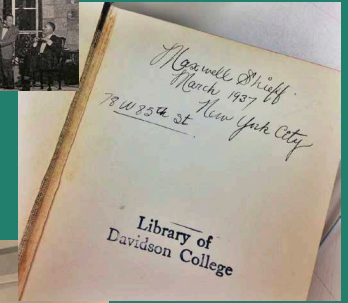 Maxwell Shieff.
March 1937
New York City
78 W 85th St.
Library of
Davidson College